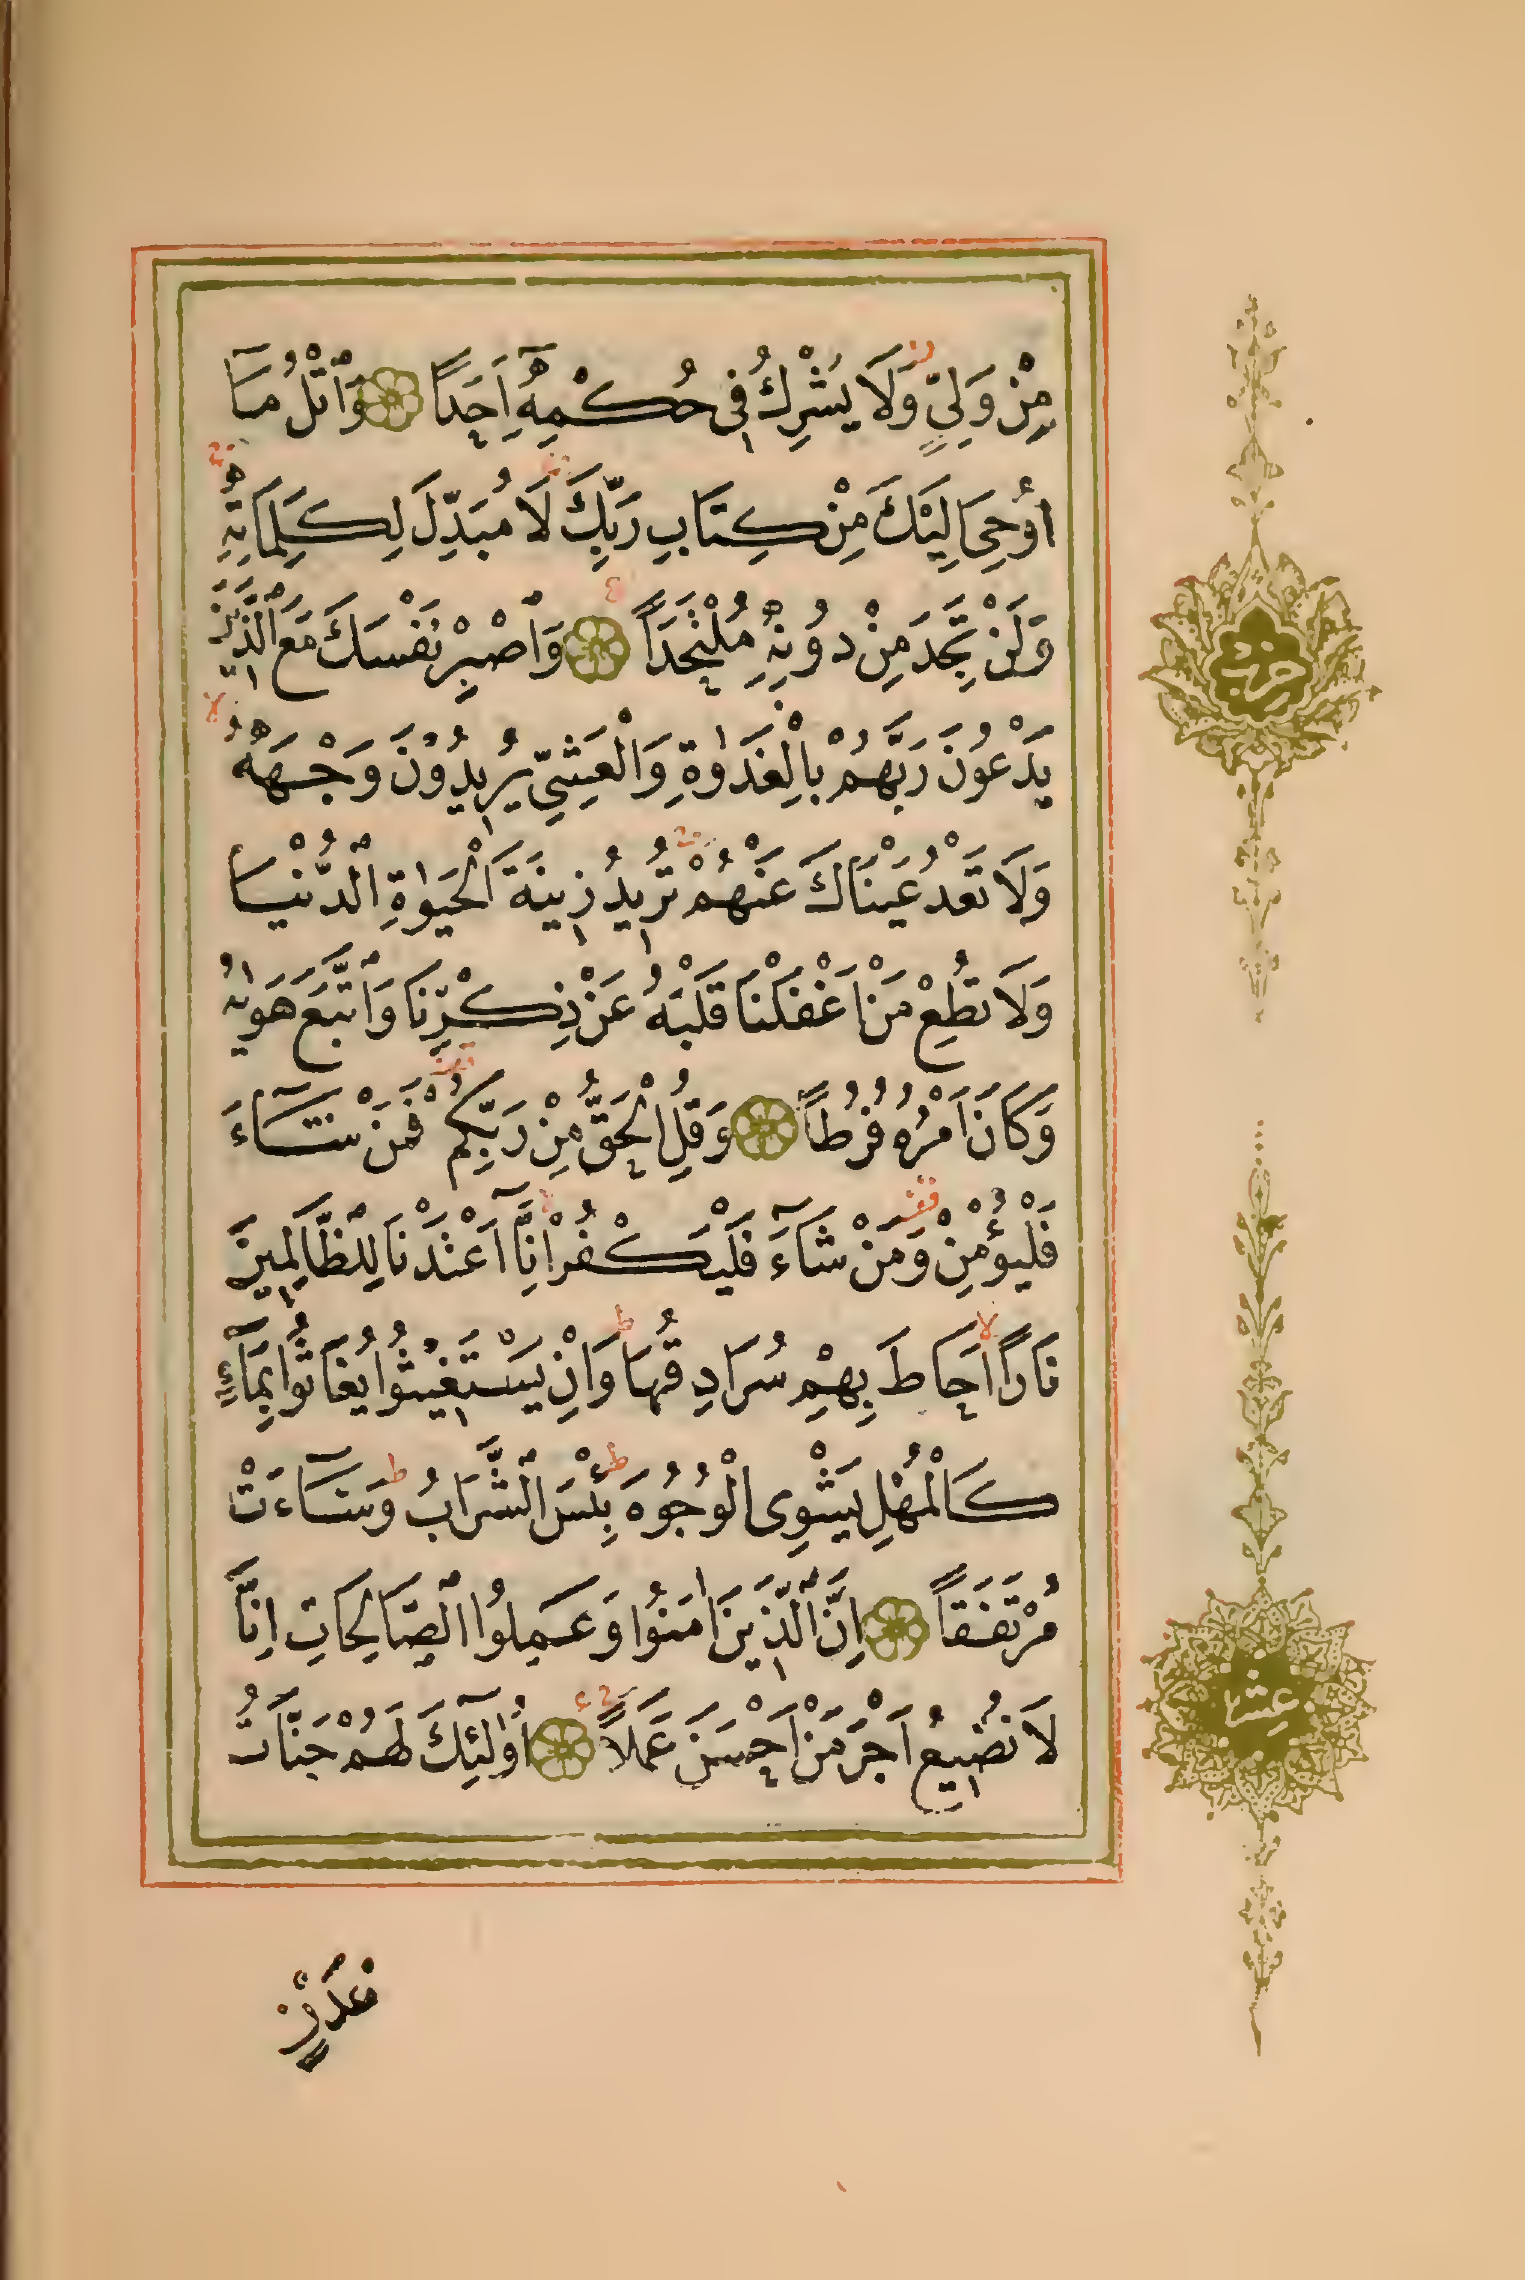 مِنْ وَلِىٍّ وَلَا يُشْرِكُ فِى حُكْمِهِٓ اَحَدًا وَاتْلُ مَٓا
اُو۫حِىَ اِلَيْكَ مِنْ كِتَابِ رَبِّكَ لَا مُبَدِّلَ لِكَلِمَاتِهِ
وَلَنْ تَجِدَ مِنْ دُونِهِ مُلْتَحَدًا وَاصْبِرْ نَفْسَكَ مَعَ الَّذِينَ
يَدْعُونَ رَبَّهُمْ بِالْغَدٰوةِ وَالْعَشِىِّ يُرِيدُونَ وَجْهَهُ
وَلَا تَعْدُ عَيْنَاكَ عَنْهُمْ تُرِيدُ زِينَةَ الْحَيٰوةِ الدُّنْيَا
وَلَا تُطِعْ مَنْ اَغْفَلْنَا قَلْبَهُ عَنْ ذِكْرِنَا وَاتَّبَعَ هَوٰيهُ
وَكَانَ اَمْرُهُ فُرُطًا وَقُلِ الْحَقُّ مِنْ رَبِّكُمْ فَمَنْ شَٓاءَ
فَلْيُؤْمِنْ وَمَنْ شَٓاءَ فَلْيَكْفُرْ اِنَّٓا اَعْتَدْنَا لِلظَّالِمِينَ
نَارًا اَحَاطَ بِهِمْ سُرَادِقُهَا وَاِنْ يَسْتَغِيثُوا يُغَاثُوا بِمَٓاءٍ
كَالْمُهْلِ يَشْوِى الْوُجُوهَ بِئْسَ الشَّرَابُ وَسَٓاءَتْ
مُرْتَفَقًا اِنَّ الَّذِينَ اٰمَنُوا وَعَمِلُوا الصَّالِحَاتِ اِنَّا
لَا نُضِيعُ اَجْرَ مَنْ اَحْسَنَ عَمَلًا اُو۬لٰٓئِكَ لَهُمْ جَنَّاتُ
عَدْنٍ
حزب
عشر